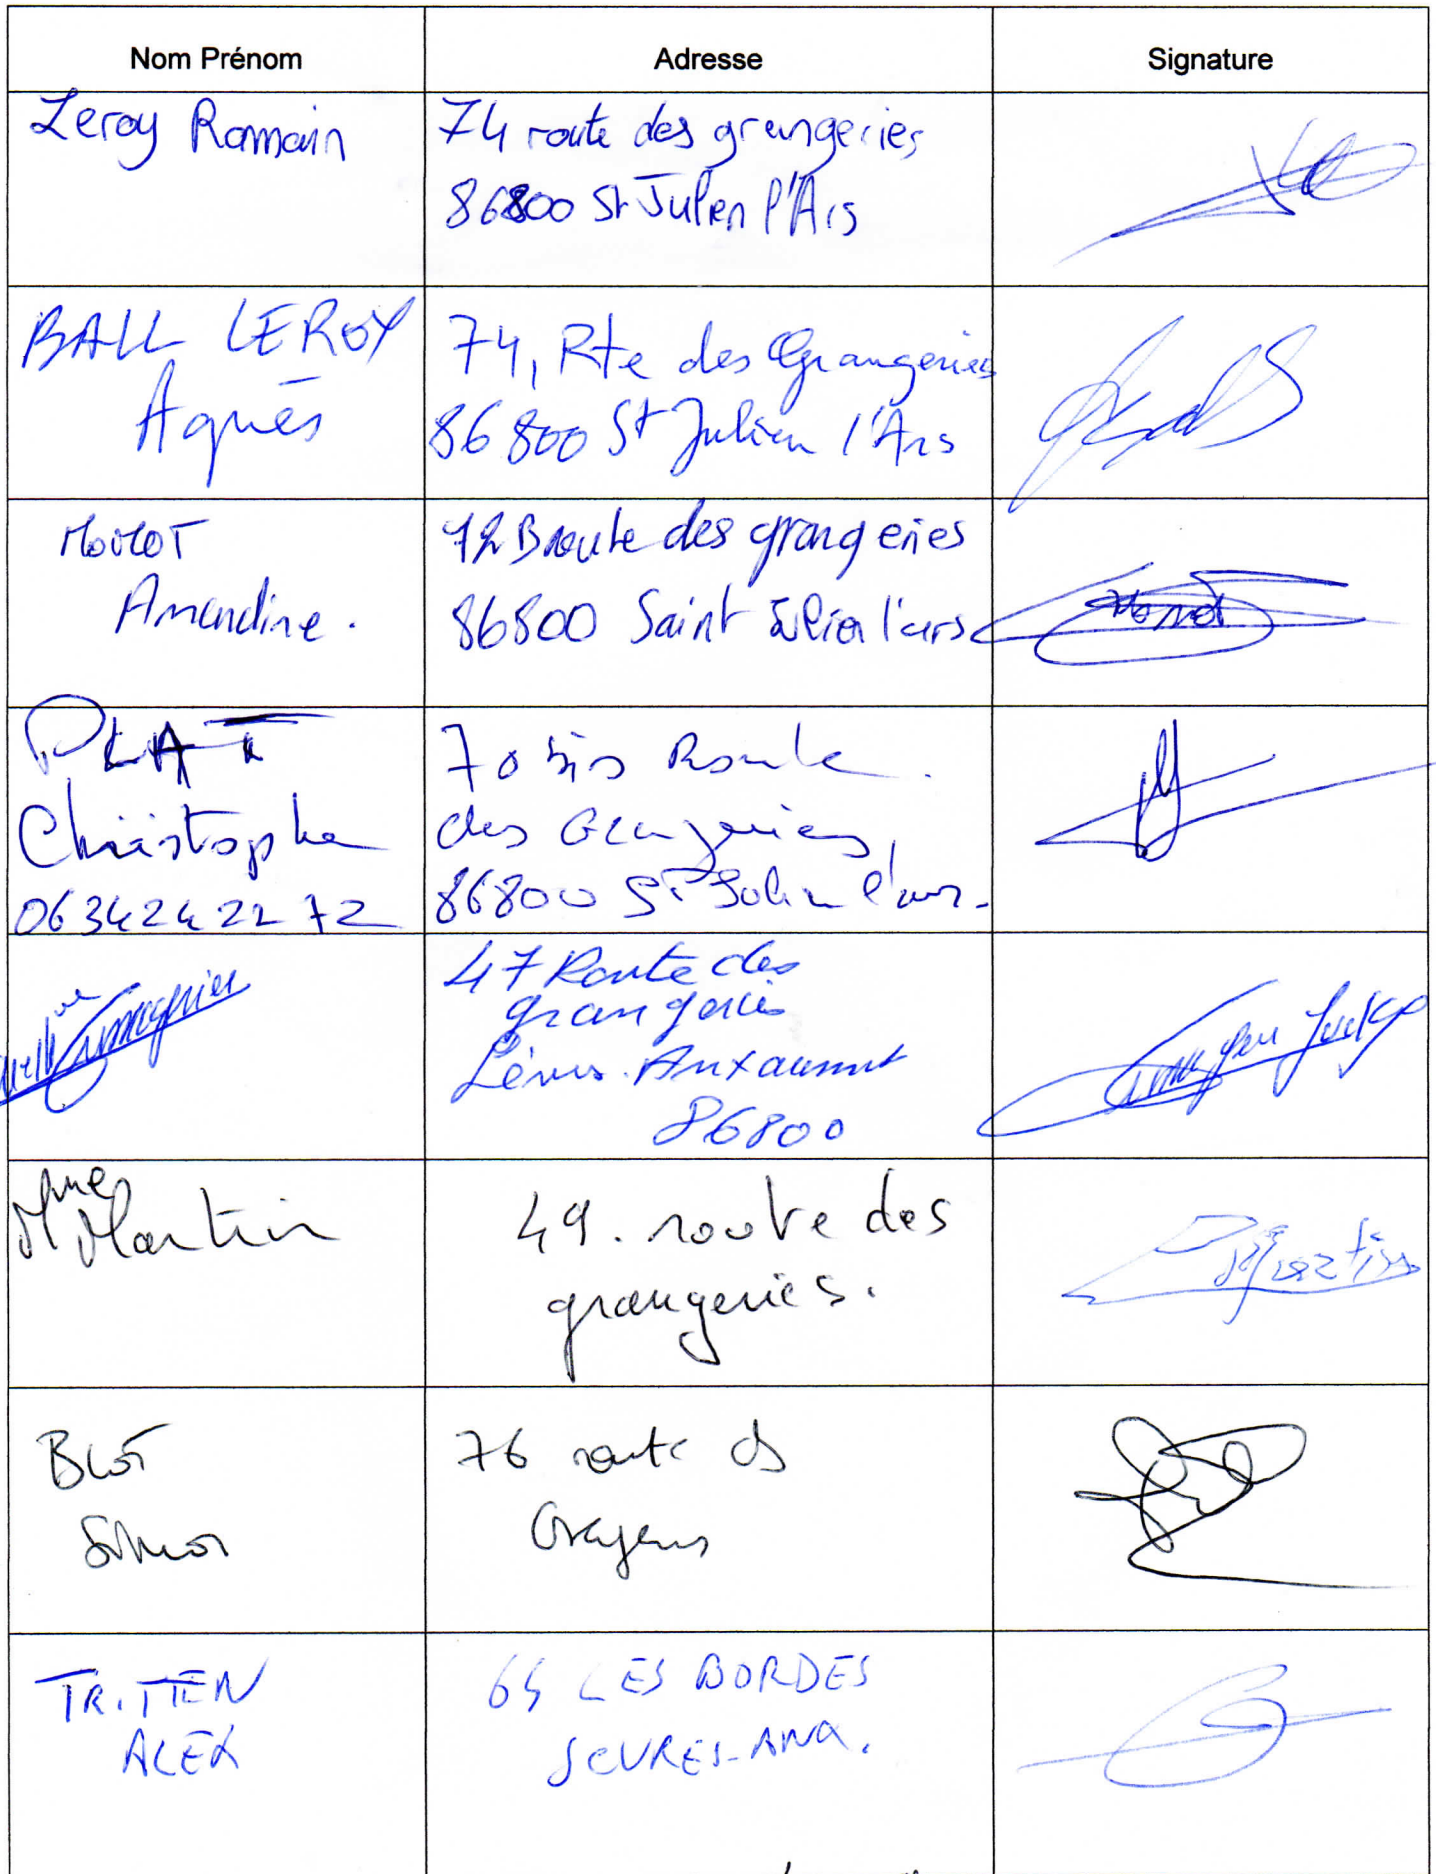 Nom Prénom
Adresse
Signature
Leroy Romain
74 route des grangeries
86800 St Julien l'Ars
BALL LEROY
Agnès
74, Rte des Grangeries
86800 St Julien l'Ars
Amandine.
72B route des grangeries
86800 Saint Julien l'ars
PLAT
Christophe
06 34 24 22 72
70 bis Route
des Grangeries,
86800 St Julien l'ars.
47 Route des
grangeries
Anxaumont
86800
Mme Martin
49. route des
grangeries.
BLOT
76 route ds
TRITTEN
ALEX
LES BORDES
SEVRES-ANX.